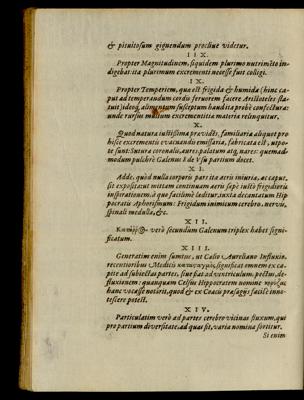 & pituitosum gignendum proclive videtur.
IIX.
Propter Magnitudinem, siquidem plurimo nutrimēto in-
digebat: ita plurimum excrementi necesse fuit colligi.
IX.
Propter Temperiem, quæ est frigida & humida (hinc ca-
put ad temperandum cordis fervorem facere Aristoteles sta-
tuit) ideoq́; alimentum susceptum haud ita probè confectura:
unde rursus multum excrementitia materia relinquitur.
X.
Quod natura iustissima prævidēs, familiaria aliquot pro-
hisce excrementis evacuandis emissaria, fabricata est, utpo-
te sunt: Sutura coronalis, aures, palatum atq; nares: quemad-
modum pulchrè Galenus 8 de Vsu partium docet.
XI.
Adde, quòd nulla corporis pars ita aeris iniuriæ, ac caput,
sit exposita: ut mittam continuam aeris sæpè iusto frigidioris
inspirationem, à quo facilimè læditur, iuxta decantatum Hip-
pocratis Aphorismum: Frigidum inimicum cerebro, nervis,
spinali medullæ, &c.
XII.
verò secundùm Galenum triplex habet signi-
ficatum.
XIII.
Generatim enim sumtus, ut Cælio Aureliano Influxio,
recentioribus Medicis significat omnem ex ca-
pite ad subiectas partes, sive fiat ad ventriculum, pectus, de-
fluxionem: quanquam Celsus Hippocratem nomine
hanc vocasse notârit, quod & ex Coacis præsagijs facilè inno-
tescere potest.
XIV.
Particulatim verò ad partes cerebro vicinas fluxum, qui
pro partium diversitate, ad quas fit, varia nomina sortitur.
Si enim